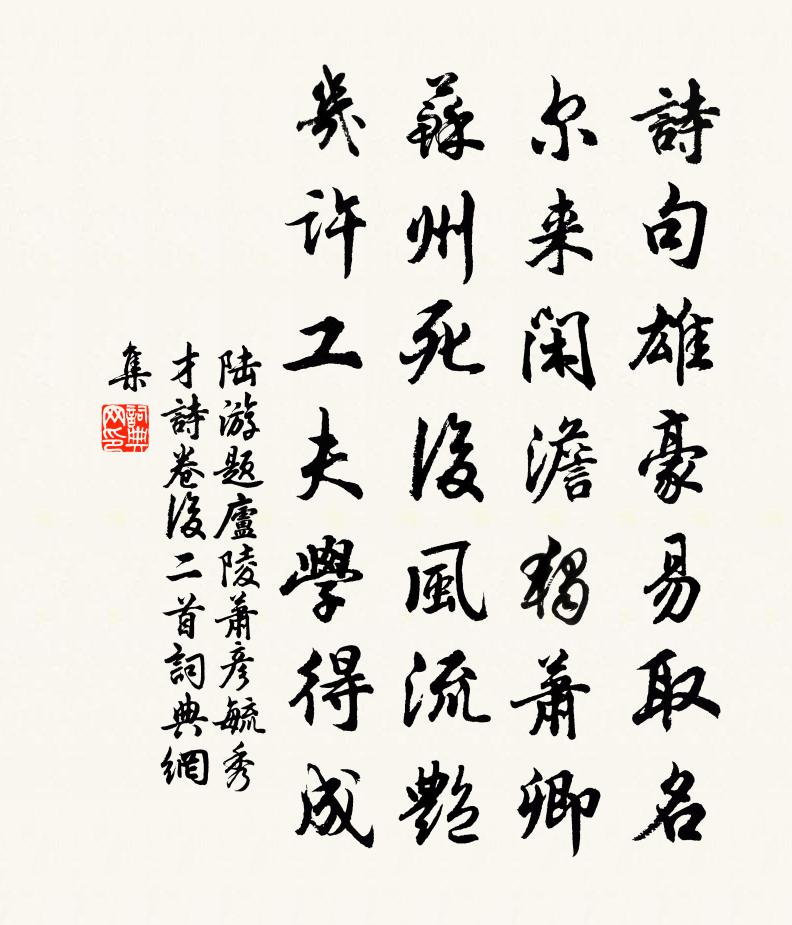 詩句雄豪易取名
尔来閑澹獨蕭卿
蘇州死後風流艷
幾許工夫學得成
陆游题廬陵蕭彦毓秀
才詩卷後二首詞典網
集
詞典网印